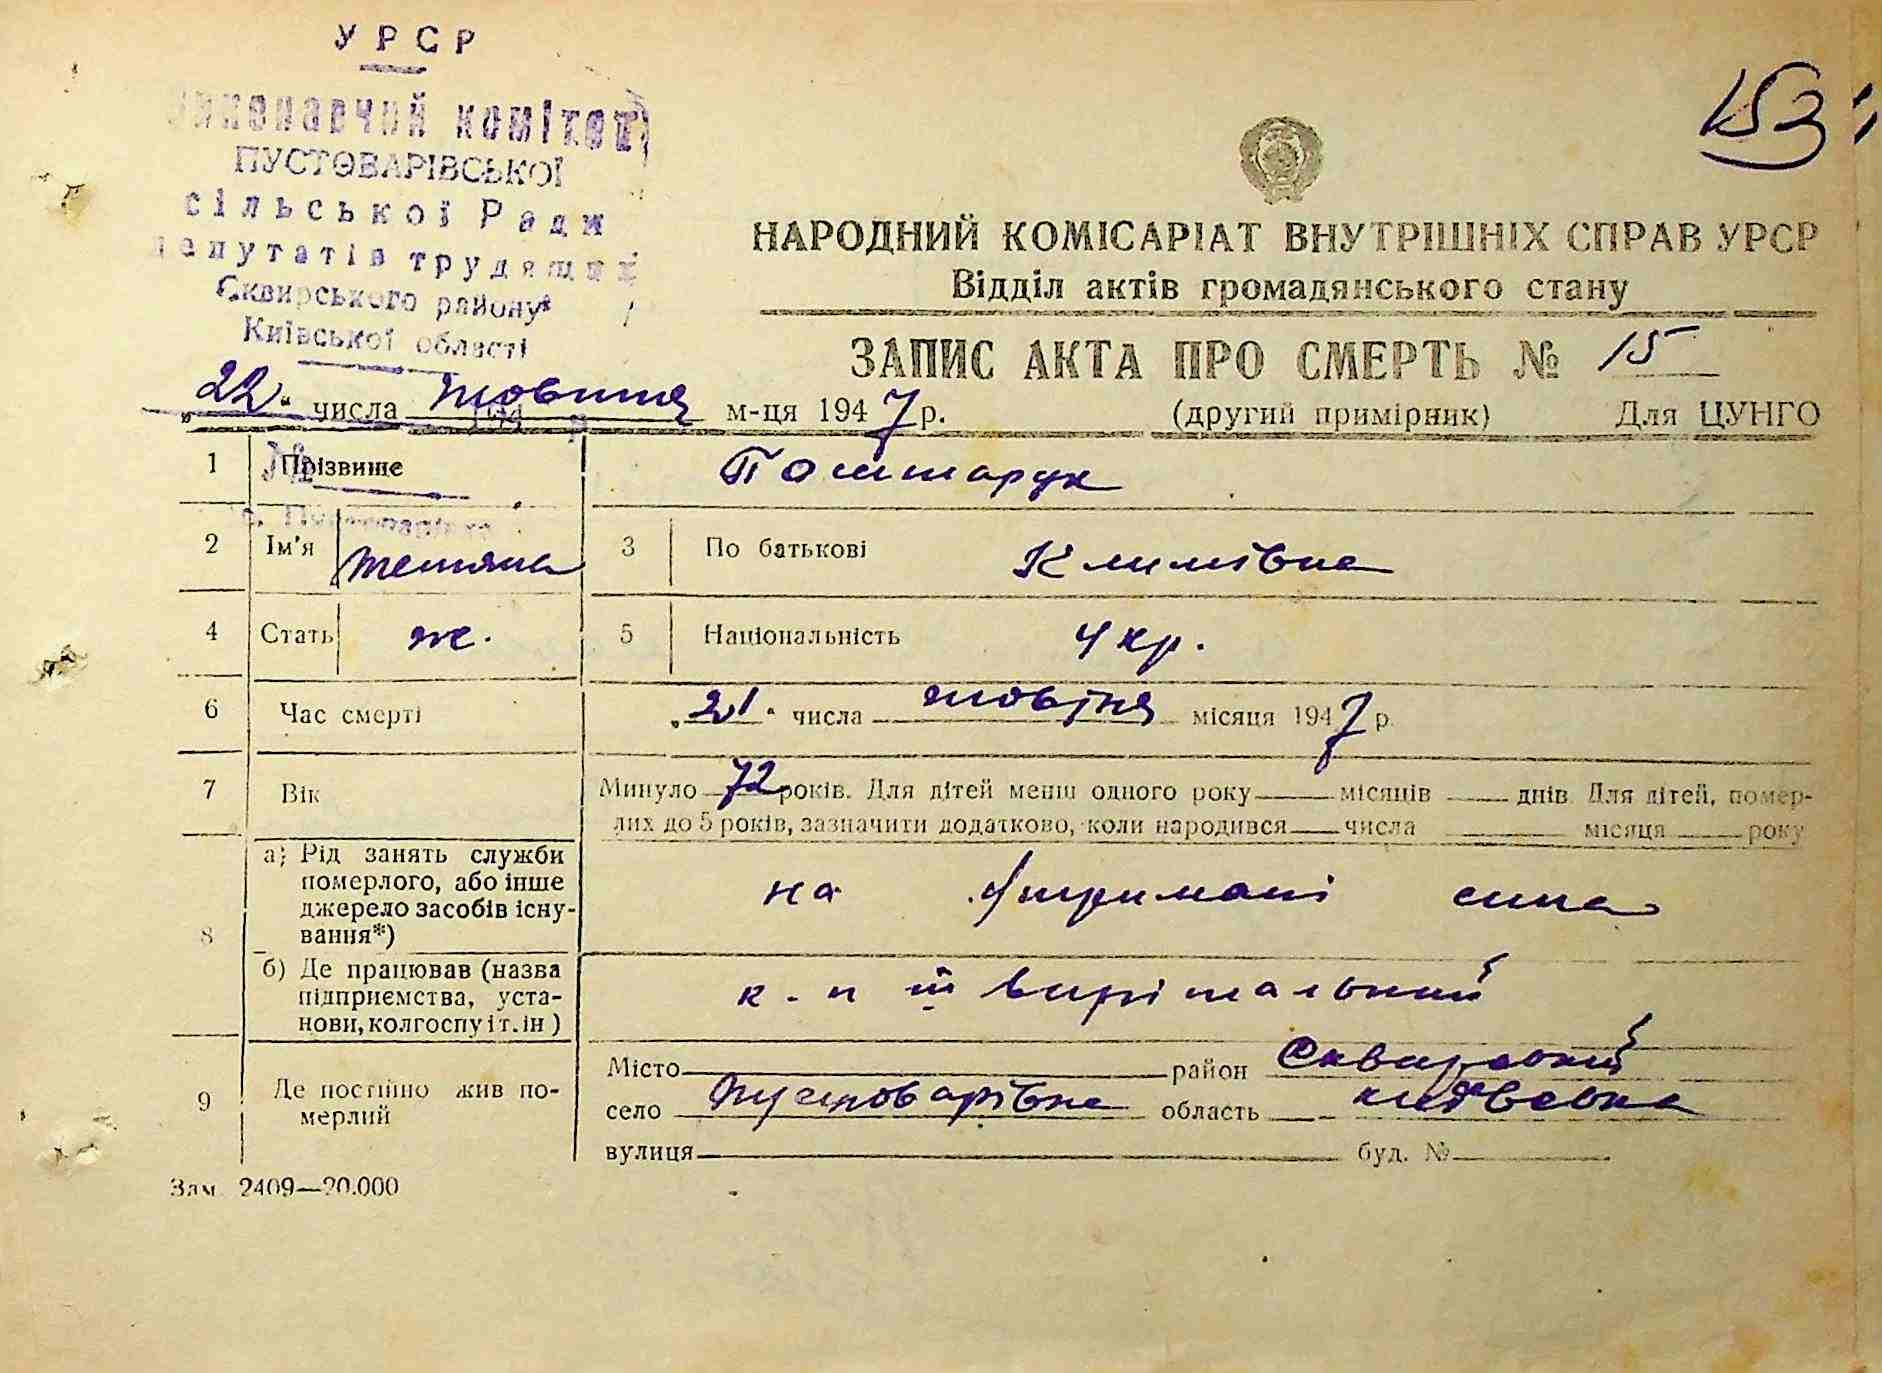 УРСР
Виконавчий комітет
ПУСТОВАРІВСЬКОЇ
сільської Ради
депутатів трудящих
Сквирського району
Київської області
153
НАРОДНИЙ КОМІСАРІАТ ВНУТРІШНІХ СПРАВ УРСР
Відділ актів громадянського стану
ЗАПИС АКТА ПРО СМЕРТЬ № 15
„22“ числа жовтня м-ця 1947 р. (другий примірник) Для ЦУНГО
1 Прізвище Поштарук
2 Ім'я Тетяна 3 По батькові Климівна
4 Стать ж. 5 Національність Укр.
6 Час смерті „21“ числа жовтня місяця 1947 р.
7 Вік Минуло 72 років. Для дітей менш одного року місяців днів. Для дітей, помер-
лих до 5 років, зазначити додатково, коли народився числа місяця року
8 а) Рід занять служби
померлого, або інше
джерело засобів існу-
вання*)
на утримані сина
б) Де працював (назва
підприємства, уста-
нови, колгоспу і т. ін.)
к-п
9 Де постійно жив по-
мерлий
Місто район Сквирський
село Пустоварівка область київська
вулиця буд. №
Зам. 2409—20.000